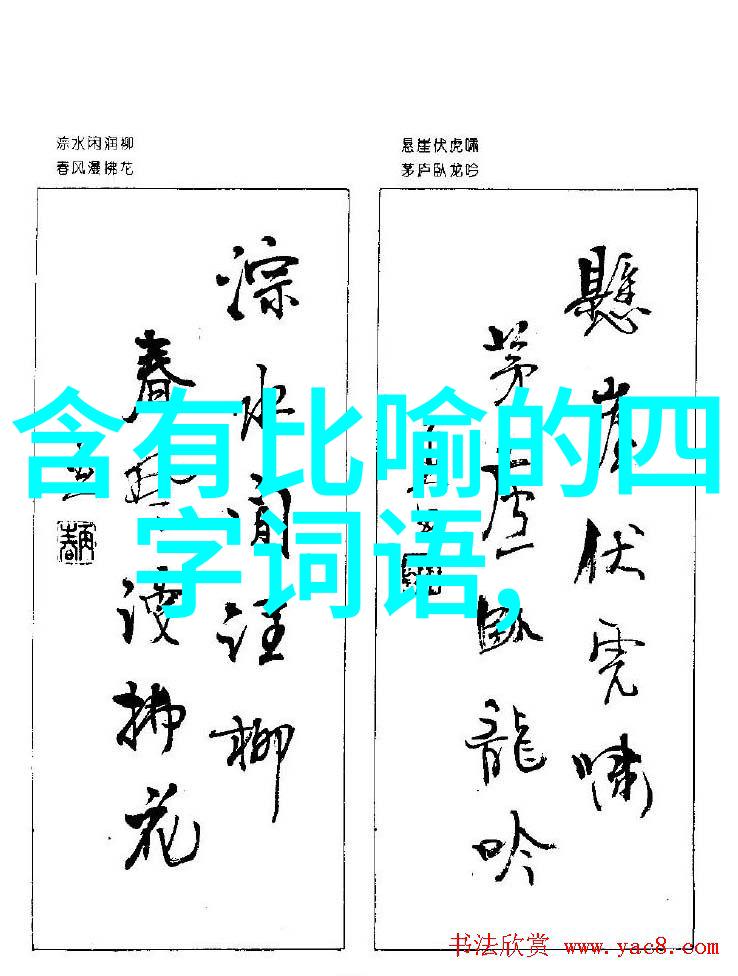 淙水闲润柳
春风漫拂花
悬崖伏虎啸
茅庐卧龙吟
含有比喻的四
字词语,
淙水闲注柳
春风漫拂花
懸崖伏虎嘯
茅廬卧龍吟
书法欣赏 www.yac8.com